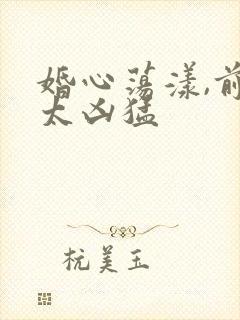 婚心荡漾,前
太凶猛
杭美玉